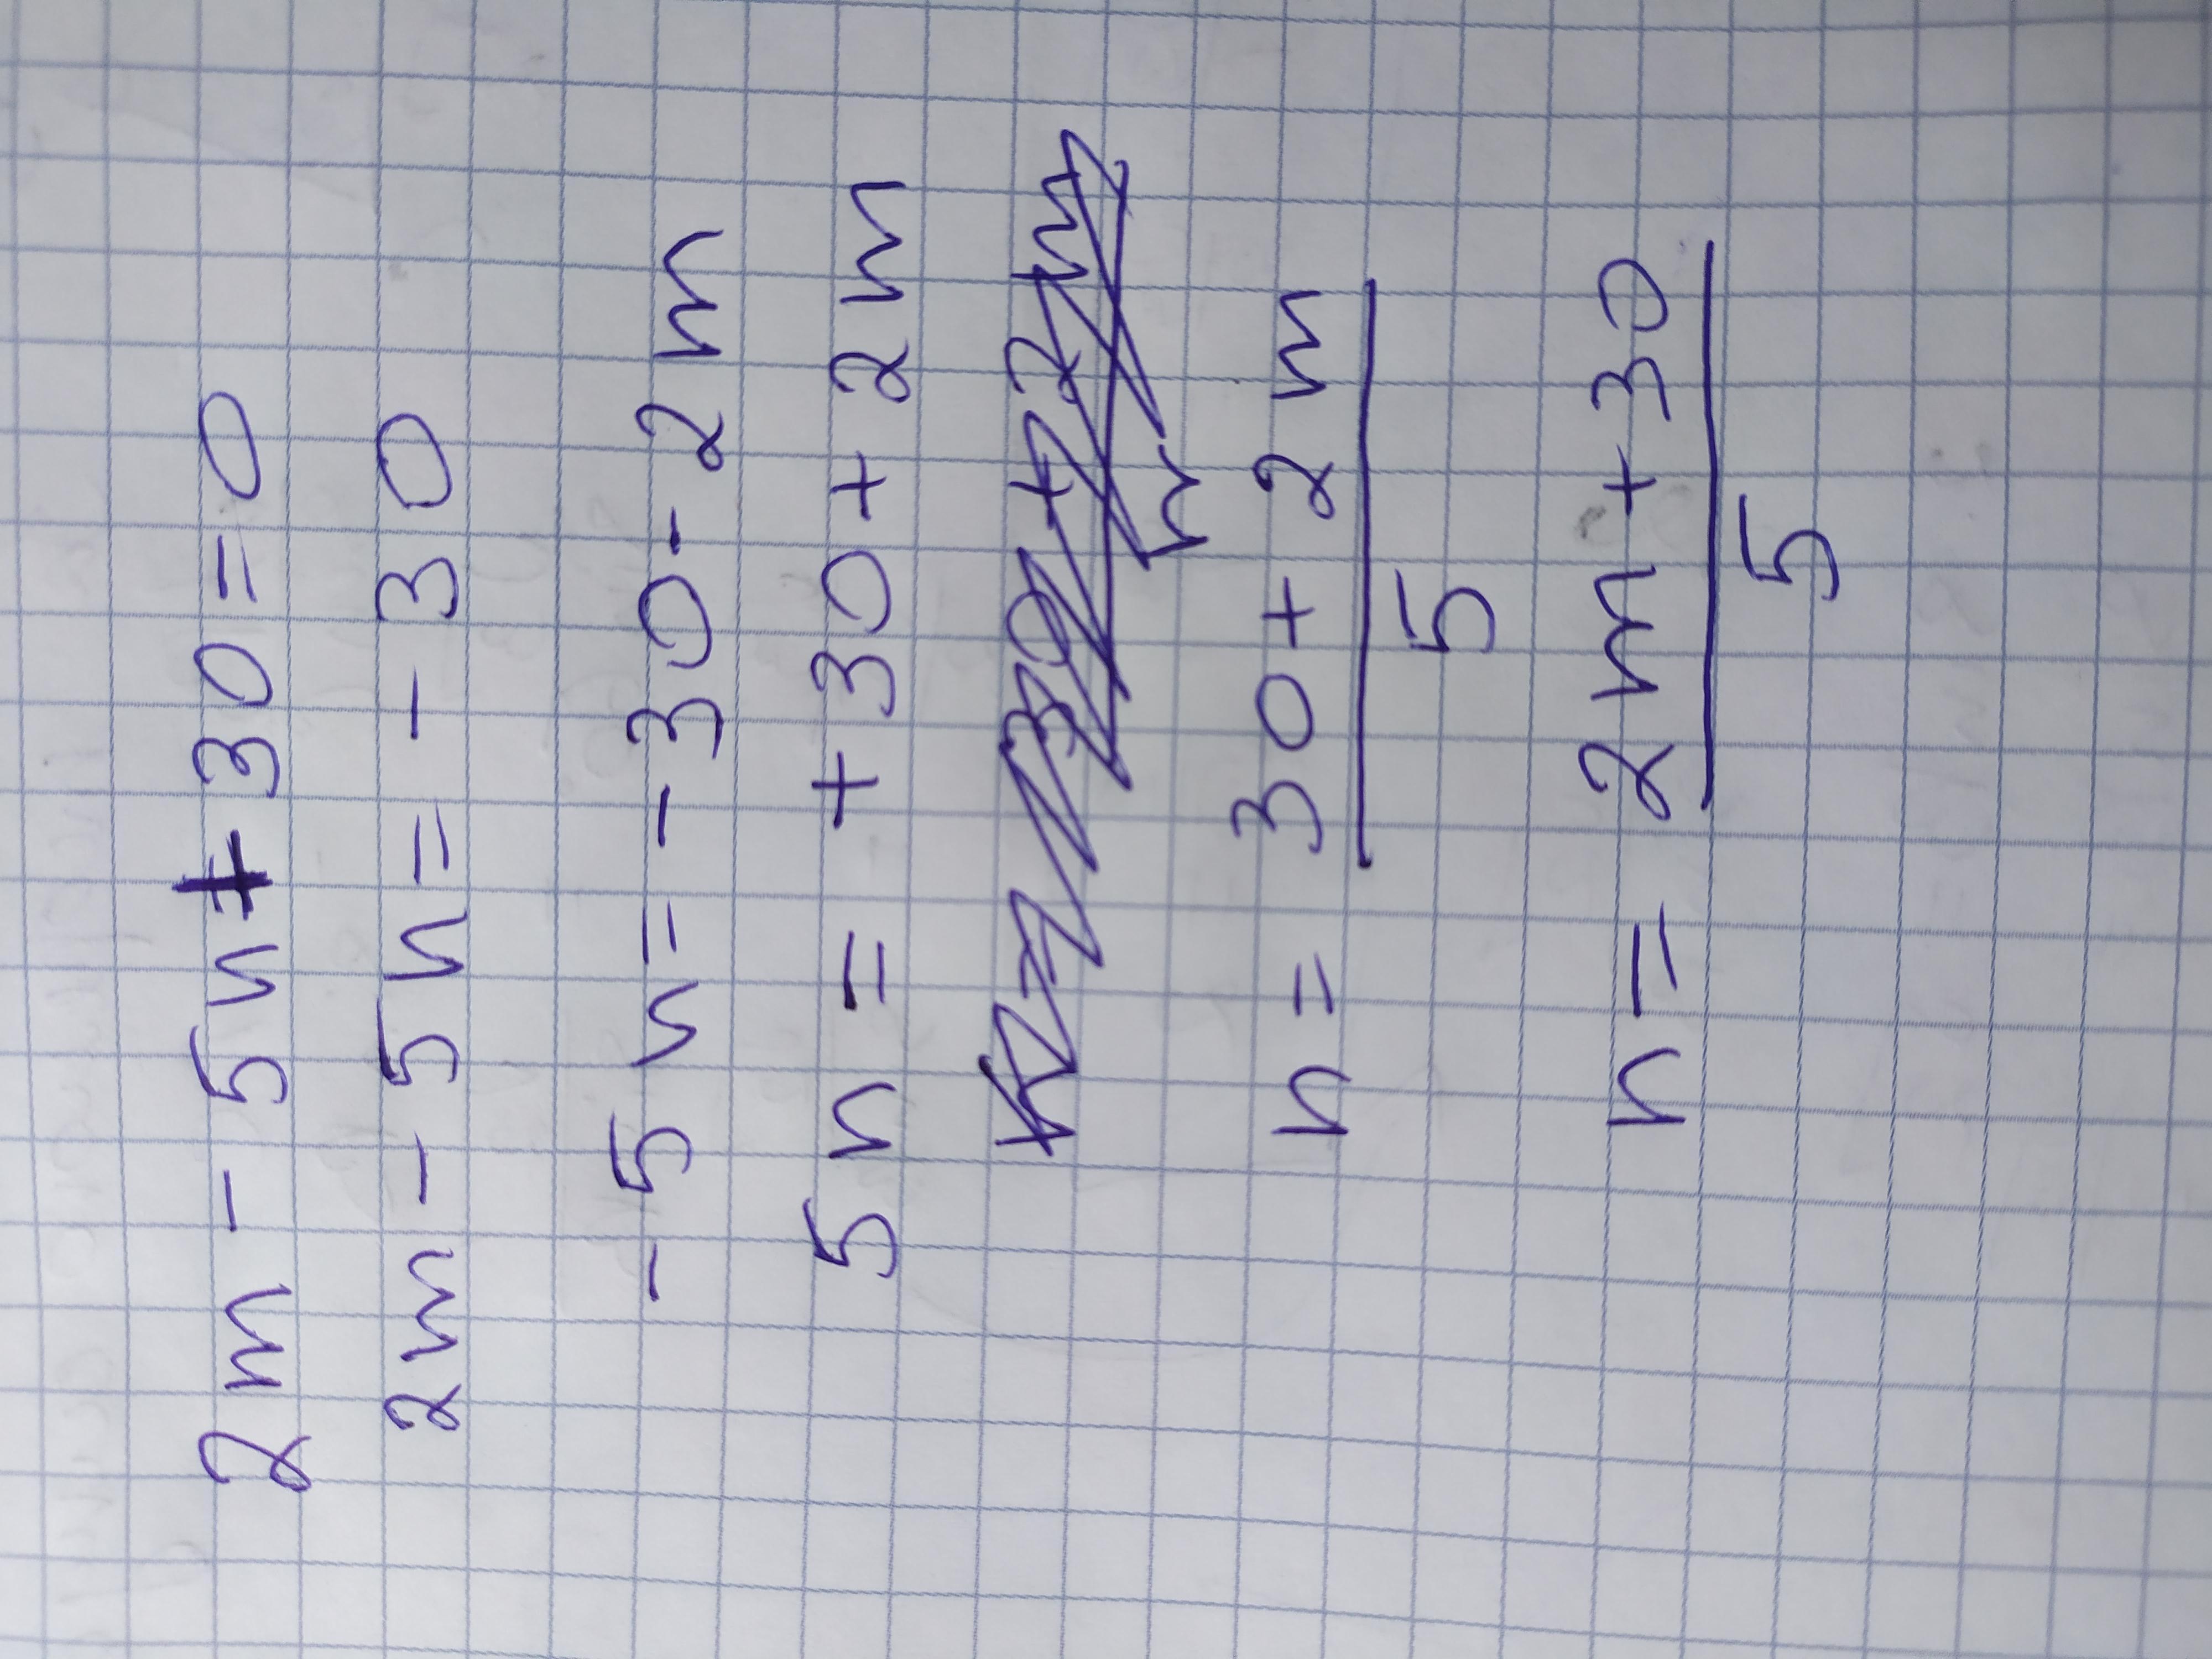 2m - 5n + 30 = 0
2m - 5n = - 30
- 5n = - 30 - 2m
5n = + 30 + 2m
n = 30 + 2m
5
n = 2m + 30
5